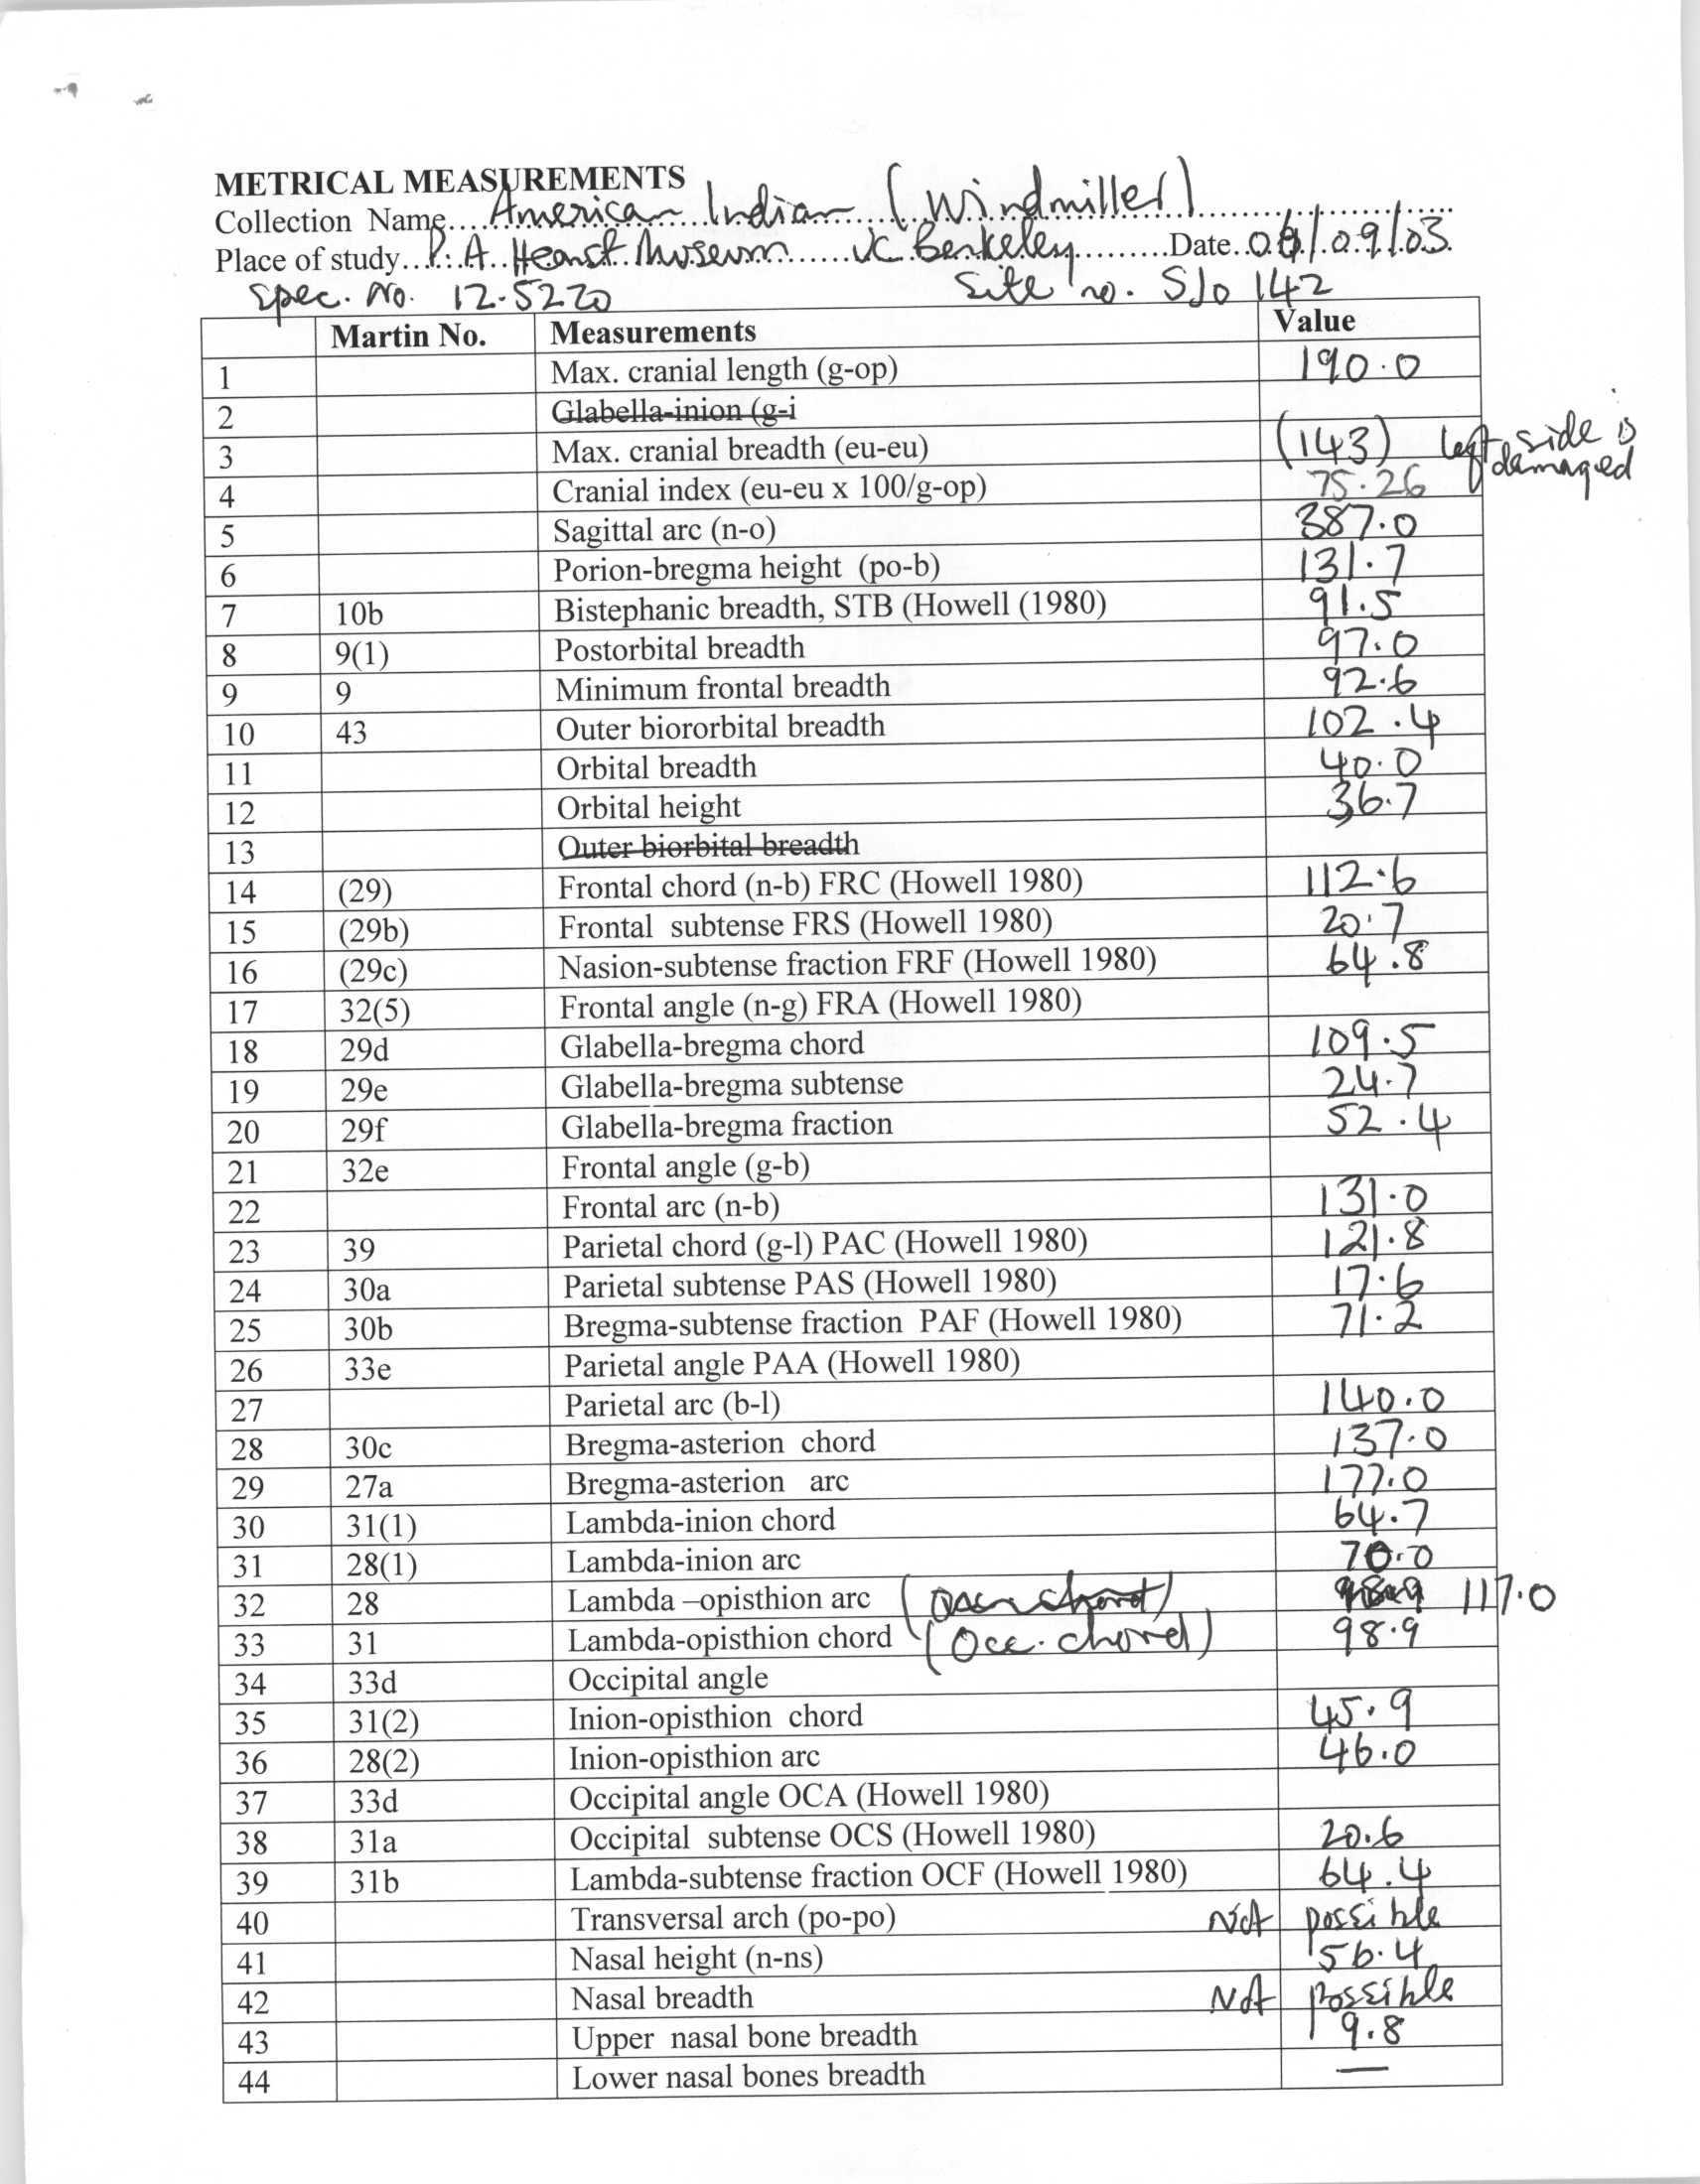 METRICAL MEASUREMENTS
Collection Name....American Indian (Windmiller)
Place of study...P.A. Hearst Museum UC Berkeley Date..09/03
Spec. No. 12-5220 Site no. SJo 142
Martin No. Measurements Value
1 Max. cranial length (g-op) 190.0
2 Glabella-inion (g-i
3 Max. cranial breadth (eu-eu) (143) left side is damaged
4 Cranial index (eu-eu x 100/g-op) 75.26
5 Sagittal arc (n-o) 387.0
6 Porion-bregma height (po-b) 131.7
7 10b Bistephanic breadth, STB (Howell (1980) 91.5
8 9(1) Postorbital breadth 97.0
9 9 Minimum frontal breadth 92.6
10 43 Outer biororbital breadth 102.4
11 Orbital breadth 40.0
12 Orbital height 36.7
13 Outer biorbital breadth
14 (29) Frontal chord (n-b) FRC (Howell 1980) 112.6
15 (29b) Frontal subtense FRS (Howell 1980) 20.7
16 (29c) Nasion-subtense fraction FRF (Howell 1980) 64.8
17 32(5) Frontal angle (n-g) FRA (Howell 1980)
18 29d Glabella-bregma chord 109.5
19 29e Glabella-bregma subtense 24.7
20 29f Glabella-bregma fraction 52.4
21 32e Frontal angle (g-b)
22 Frontal arc (n-b) 131.0
23 39 Parietal chord (g-l) PAC (Howell 1980) 121.8
24 30a Parietal subtense PAS (Howell 1980) 17.6
25 30b Bregma-subtense fraction PAF (Howell 1980) 71.2
26 33e Parietal angle PAA (Howell 1980)
27 Parietal arc (b-l) 140.0
28 30c Bregma-asterion chord 137.0
29 27a Bregma-asterion arc 177.0
30 31(1) Lambda-inion chord 64.7
31 28(1) Lambda-inion arc 70.0
32 28 Lambda –opisthion arc 117.0
33 31 Lambda-opisthion chord (Occ. chord) 98.9
34 33d Occipital angle
35 31(2) Inion-opisthion chord 45.9
36 28(2) Inion-opisthion arc 46.0
37 33d Occipital angle OCA (Howell 1980)
38 31a Occipital subtense OCS (Howell 1980) 20.6
39 31b Lambda-subtense fraction OCF (Howell 1980) 64.4
40 Transversal arch (po-po) Not possible
41 Nasal height (n-ns) 56.4
42 Nasal breadth Not possible
43 Upper nasal bone breadth 9.8
44 Lower nasal bones breadth —